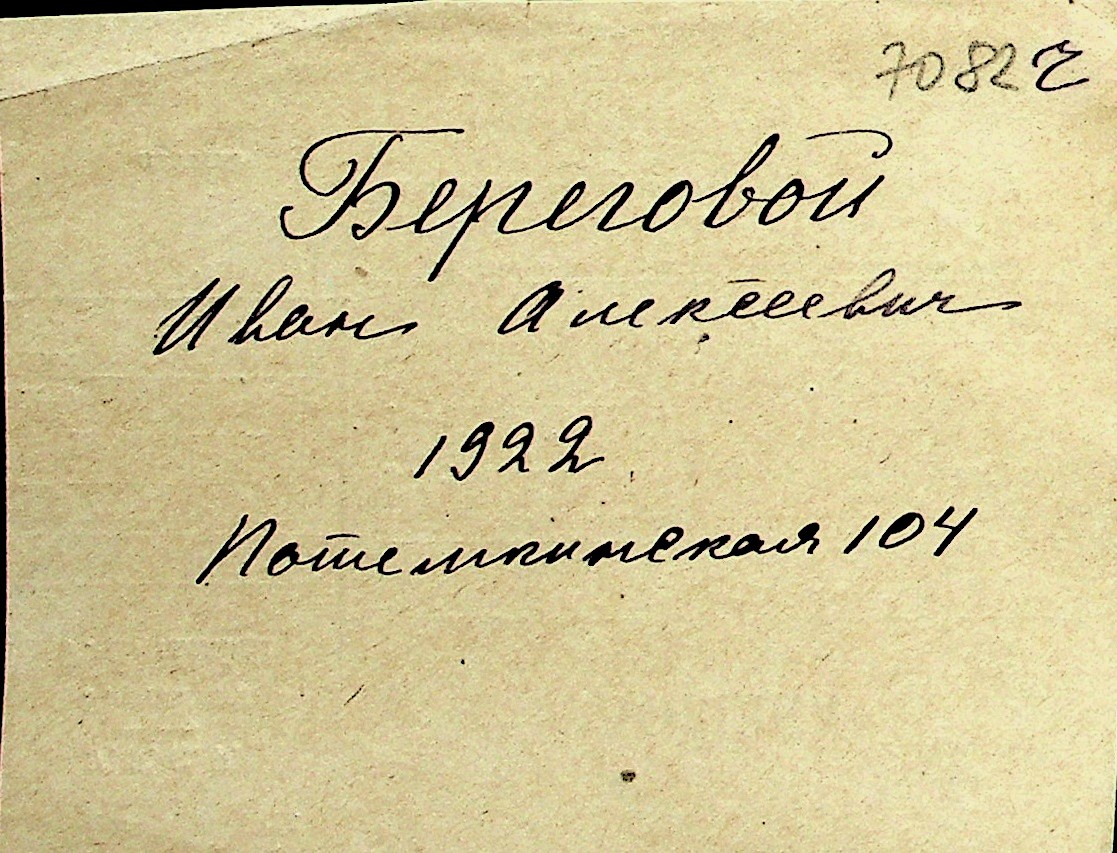 7082 г
Береговой
Иван Алексеевич
1922
Потемкинская 104